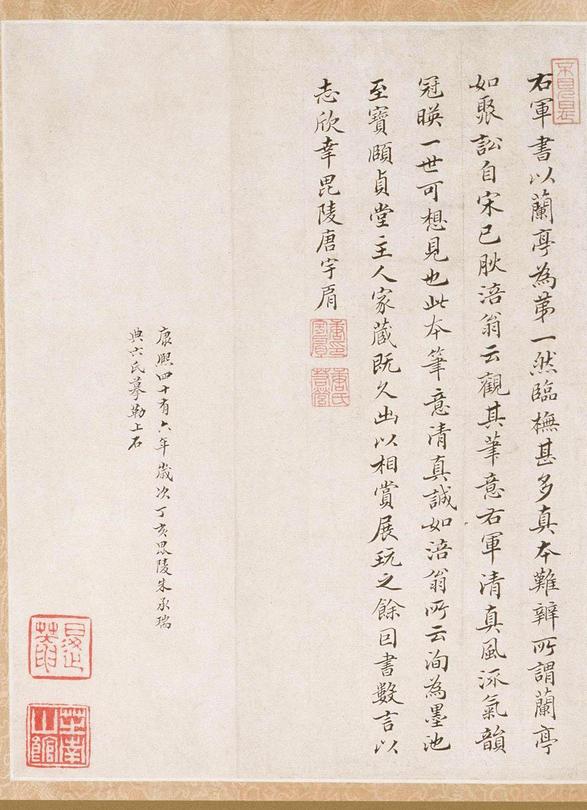 右軍書以蘭亭為第一然臨橅甚多真本難辨所謂蘭亭
如聚訟自宋已肰涪翁云觀其筆意右軍清真風流氣韻
冠暎一世可想見也此本筆意清真誠如涪翁所云洵為墨池
至寶頤貞堂主人家藏既久出以相賞展玩之餘因書數言以
志欣幸毘陵唐宇肩
康熙四十有六年歲次丁亥毘陵朱承瑞
典六氏摹勒上石